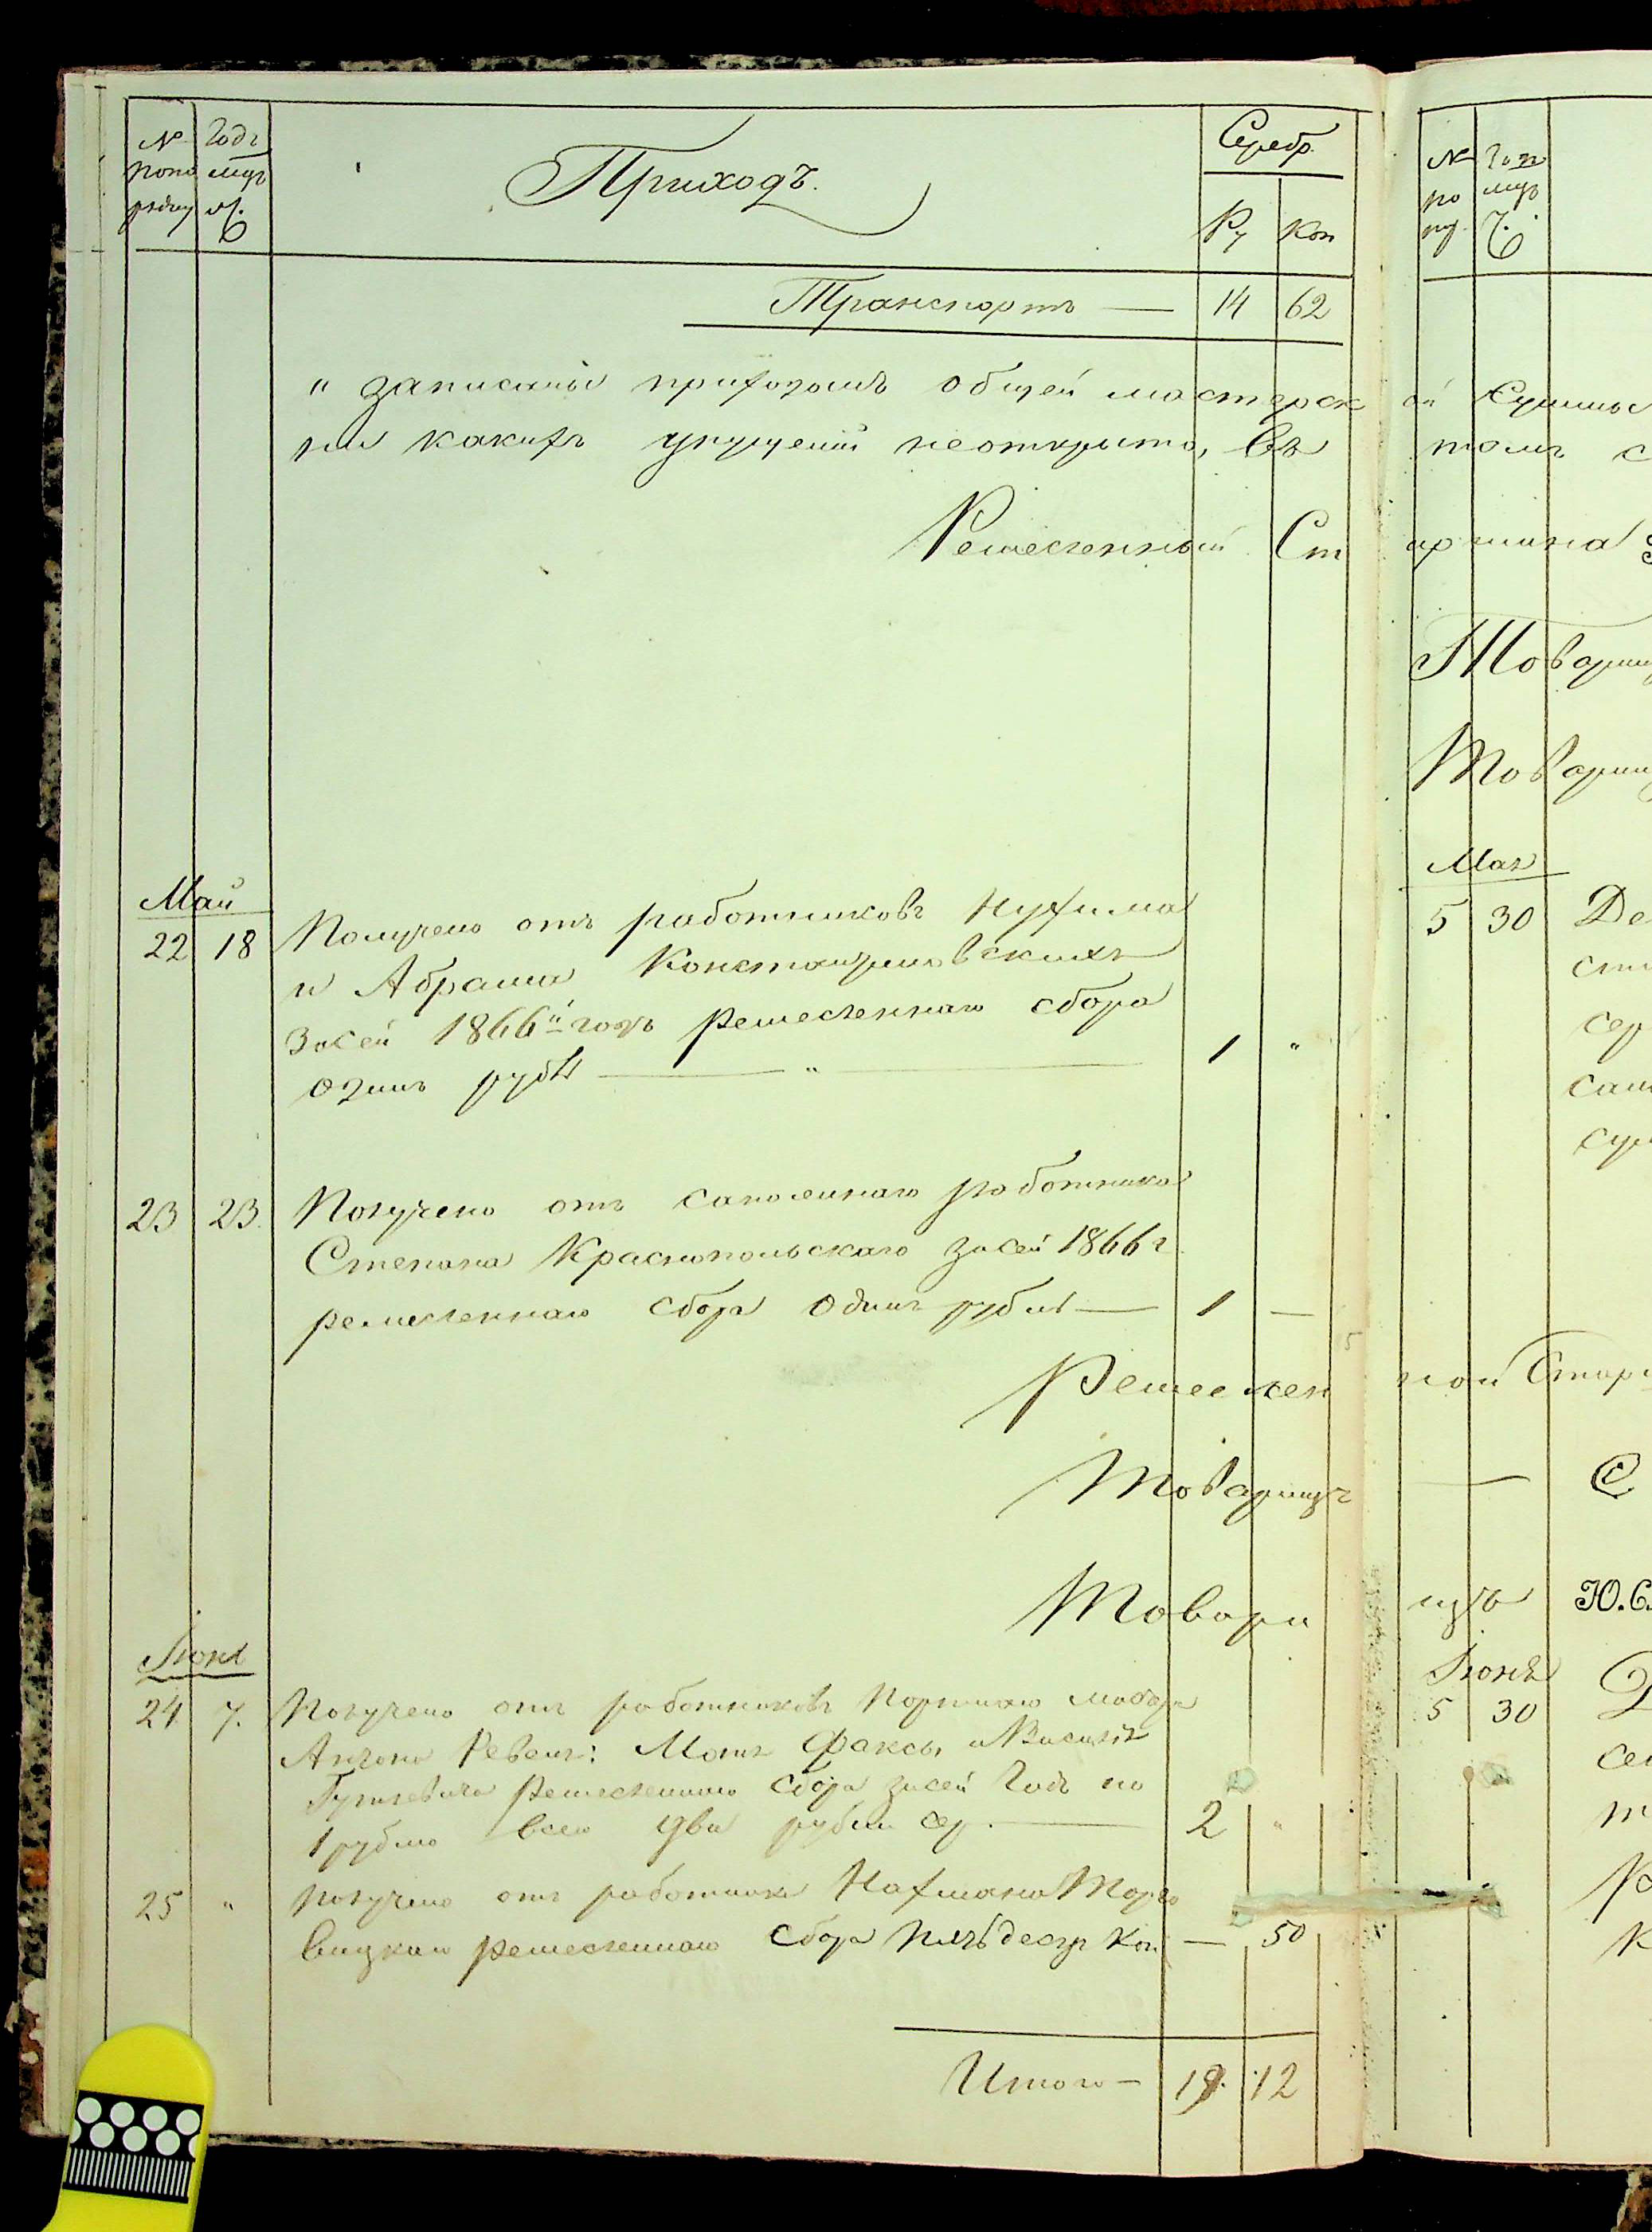 № Годъ
попо мцъ
рядку и ч.
Приходъ.
Серебр.
Ру Коп
Транспортъ — 14 62
" записаны приходомъ общей мастерск
ни какихъ упущеній неоткрыто, Въ
Ремесленный Ст
Май
22 18 Получено отъ работниковъ Нухима
и Абрама Константиновскихъ
Засей 1866й годъ Ремесленнаго сбора
одинъ рубль — " — 1 "
23 23. Получено отъ сапожнаго работника
Степана Краснопольскаго засей 1866 г
ремесленнаго сбора Одинъ рубль — 1 —
Ремеслен
Товарищъ
Товари
Іюня
24 7. Получено отъ работниковъ Портнаго
Антона Мотя Факсы и Василія
Ремесленнаго сбора засей Годъ по
1 рублю всего два рубли сер. — 2 "
25 " Получено отъ работника Нахмана Торго
вицкаго Ремесленнаго Сбора Пятьдесятъ Коп — 50
Итого — 18. 12
№ Годъ
по мцъ
ряд. Ч.
ой Суммы
томъ с
аршина
Товарищ
Товарищ
Мая
5 30 Де
сти
сер
сам
сум
ной Стар
— С
щъ Ю.С.
Іюня
5 30
сей
т
Р
К